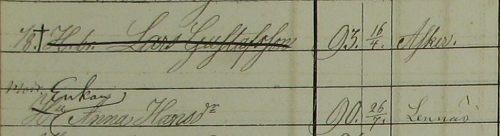 18/. † H. b. Lars Gustafsson 93. 16/4. Asker.
Enkan
Anna Hansdr 90. 26/7. Lennäs